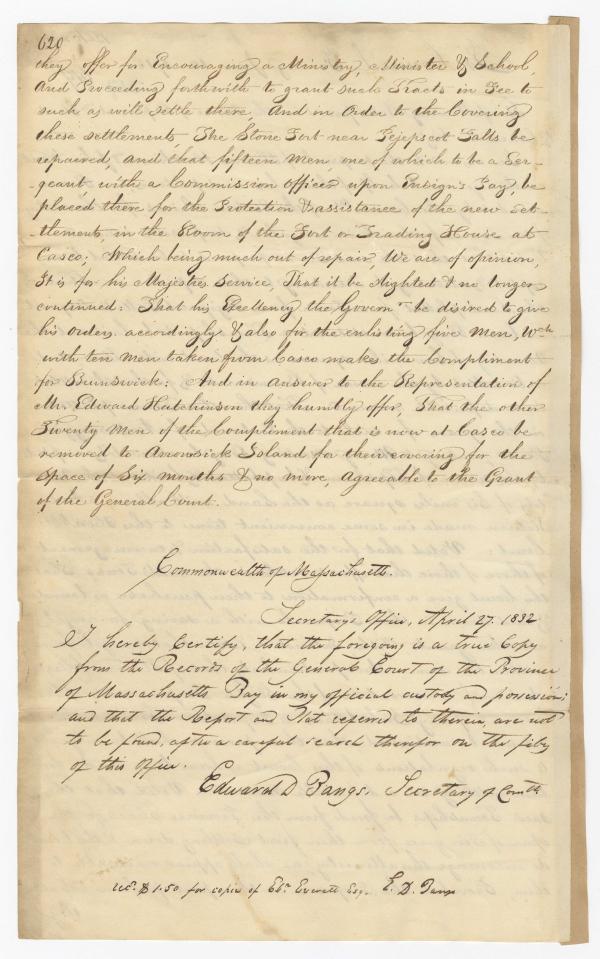 620
they offer for Encouraging a Ministry, Minister & School,
And Proceeding forthwith to grant such Tracts in Fee to
such as will settle there, And in Order to the Covering
these settlements, The Stone Fort near Pejepscot Falls be
repaired, and that fifteen Men, one of which to be a Ser-
geant, with a Commission Officer upon Ensign's Pay, be
placed there for the Protection & assistance of the new Set-
tlements, in the Room of the Fort or Trading House at
Casco; Which being much out of repair, We are of opinion,
It is for his Majesties Service, That it be slighted & no longer
continued: That his Excellency the Governr be desired to give
his orders accordingly & also for the enlisting five Men, Wch
with ten men taken from Casco makes the Compliment
for Brunswick: And in answer to the Representation of
Mr. Edward Hutchinson they humbly offer, That the other
Twenty Men of the Compliment that is now at Casco be
removed to Arrowsick Island for their covering for the
Space of Six months & no more, agreeable to the Grant
of the General Court.
Commonwealth of Massachusetts.
Secretary's Office, April 27. 1832
I hereby Certify, that the foregoing is a true Copy
from the Records of the General Court of the Province
of Massachusetts Bay in my official custody and possession;
and that the Report and Plat referred to therein, are not
to be found, after a careful search therefor on the files
of this Office.
Edward D Bangs. Secretary of Comth
recd. $1.50 for copies of Edw. Everett Esq. E. D. Bangs